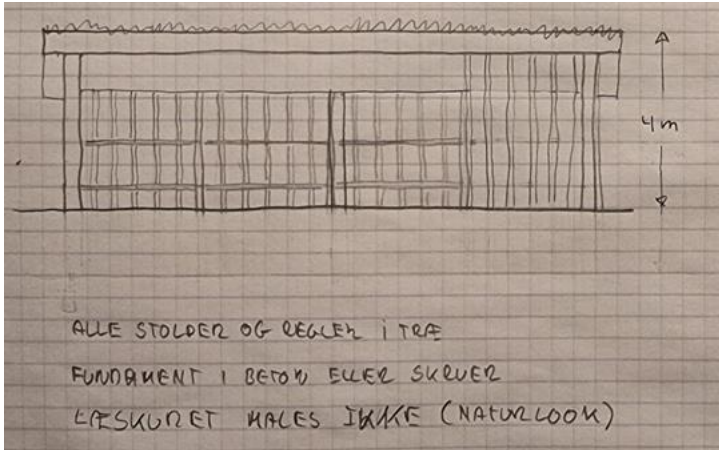 4 m
ALLE STOLPER OG REGLER I TRÆ
FUNDAMENT I BETON ELLER SKRUER
LÆSKURET MALES IKKE (NATURLOOK)